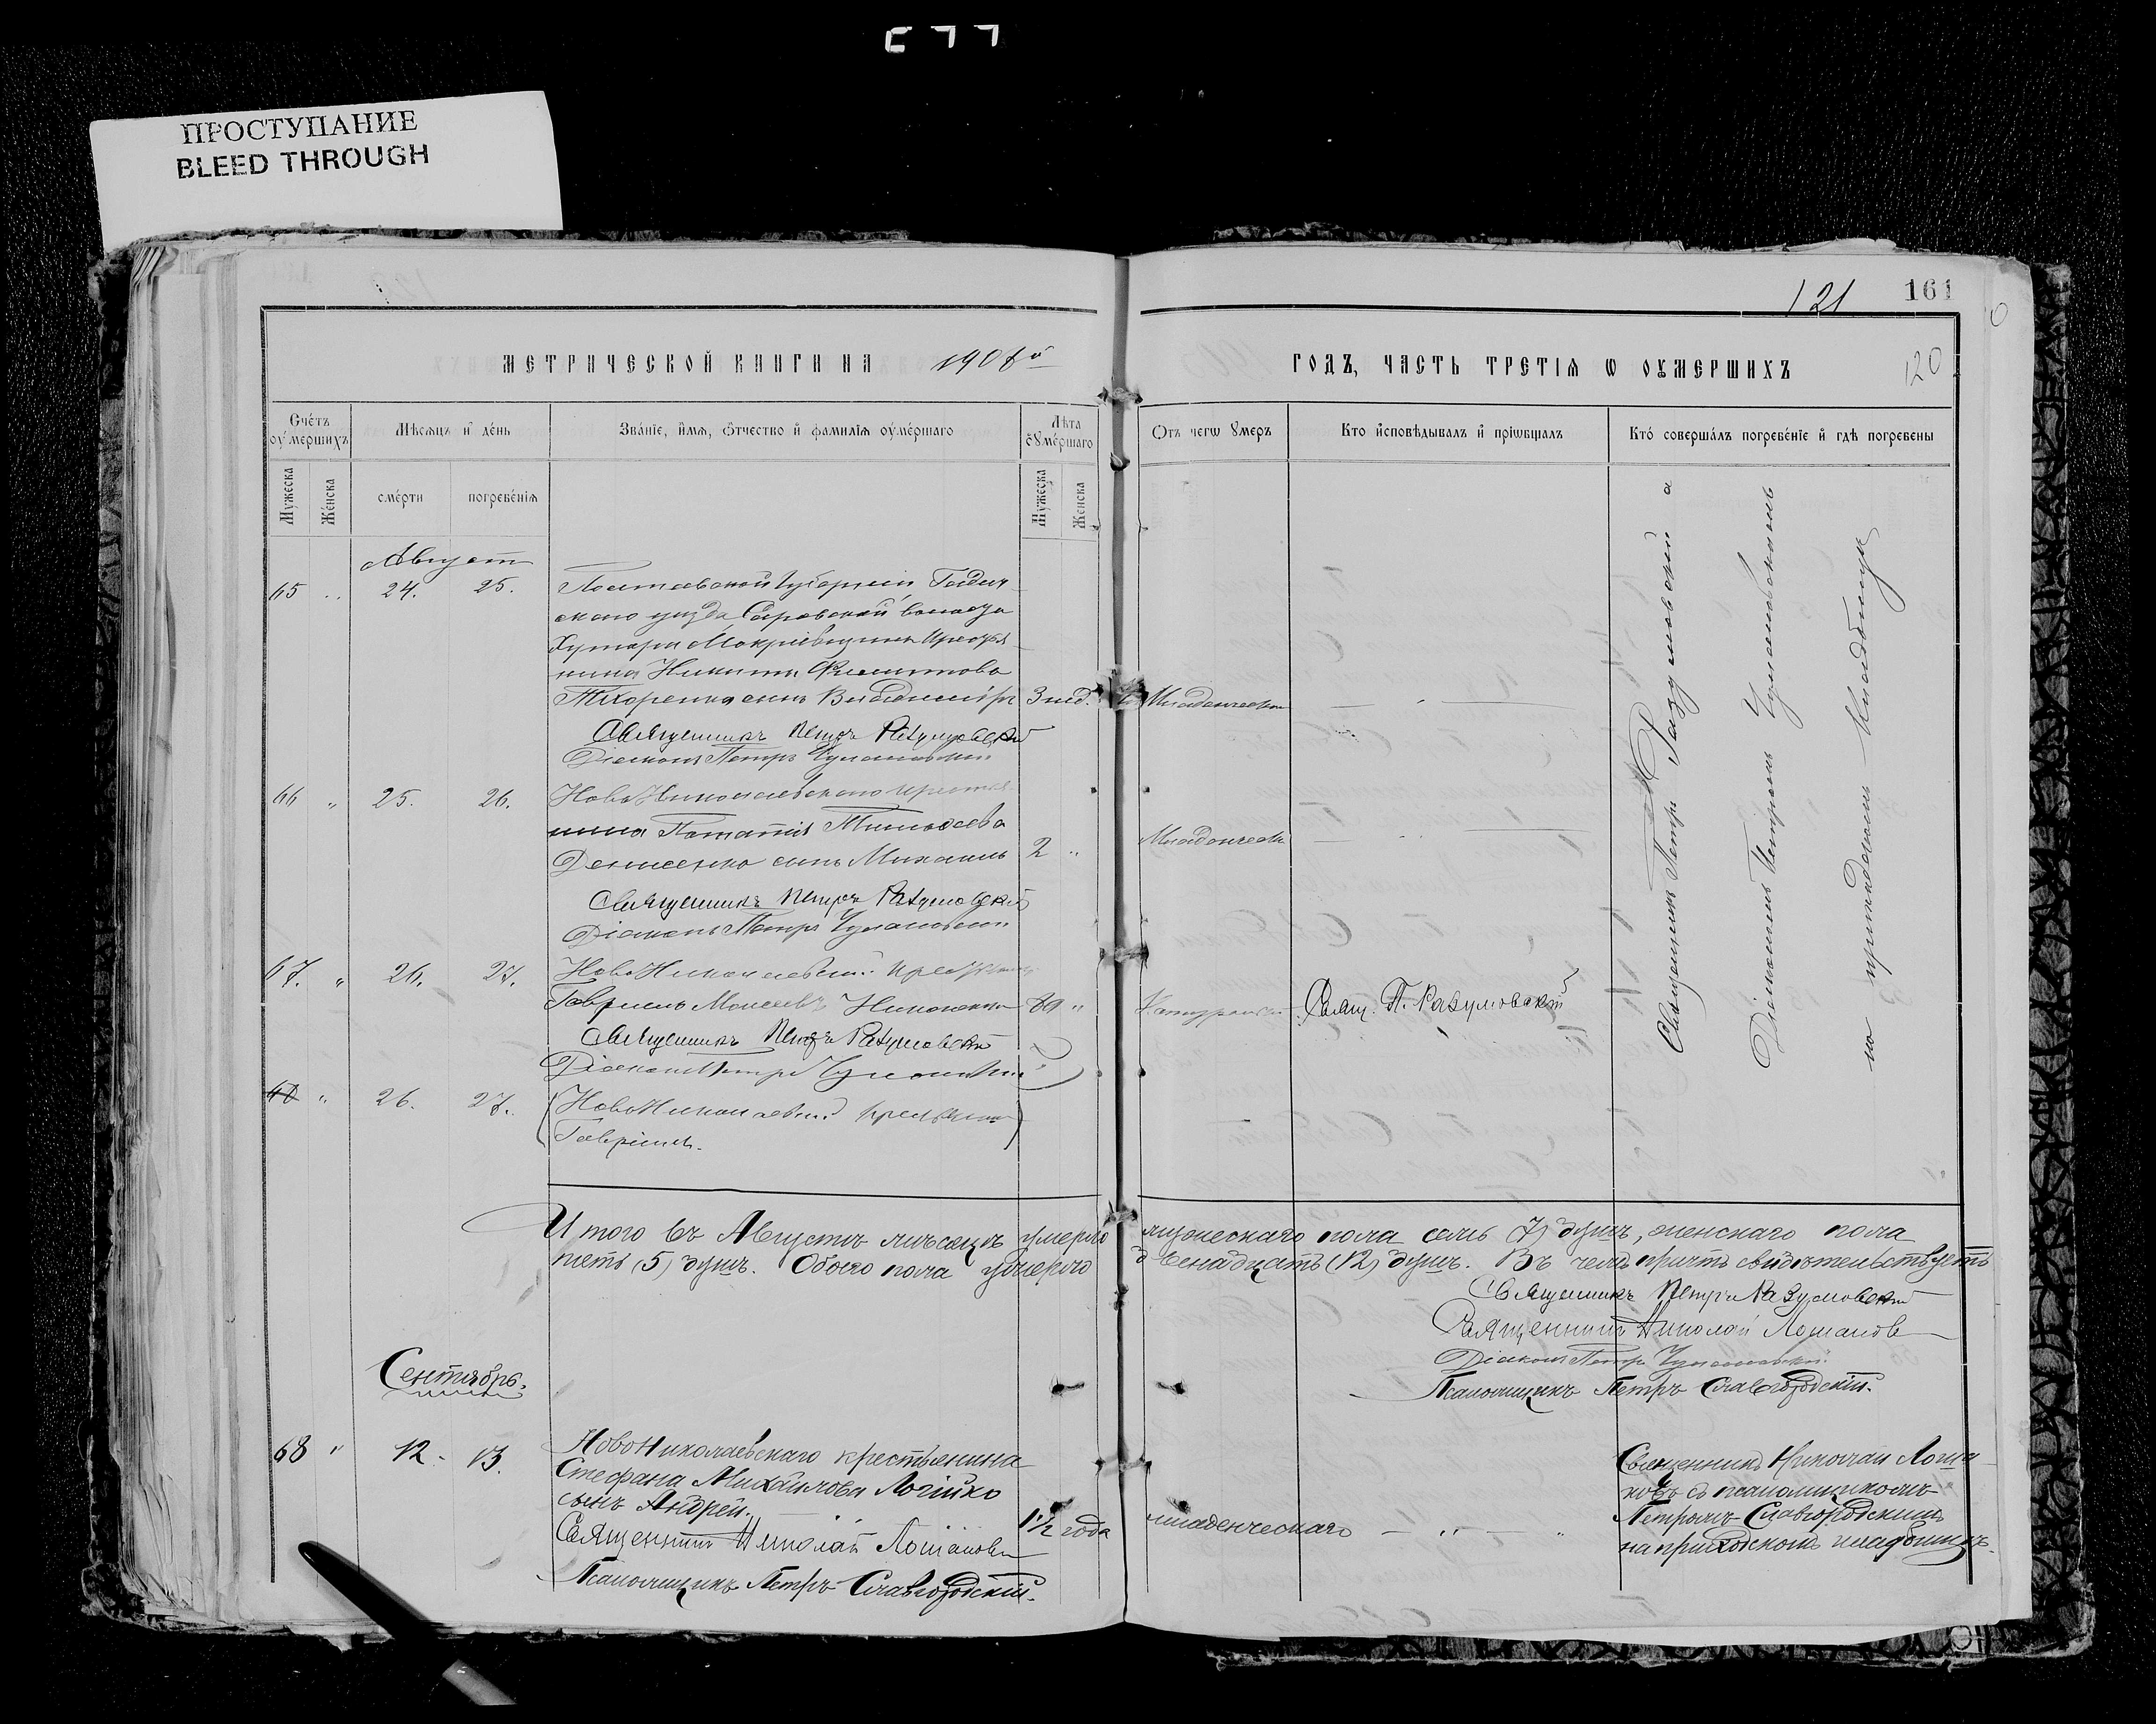 ПРОСТУПАНИЕ
BLEED THROUGH
121
161
120
МЕТРИЧЕСКОЙ КНИГИ НА 1908 й
ГОДЪ, ЧАСТЬ ТРЕТІѦ Ѡ ОУМЕРШИХЪ
Счетъ оумершихъ
Мѣсяцъ и день
Званіе, имя, отчество и фамилія оумершаго
Лѣта оумершаго
Отъ чегѡ умеръ
Кто исповѣдывалъ и пріѡбщалъ
Кто совершалъ погребеніе и гдѣ погребены
Мужеска
Женска
смерти
погребенія
Мужеска
Женска
Августъ
65 " 24. 25. Полтавской губерніи Гадяч-
скаго уѣзда Саровской волости
Хутора Мокріевщины крестья-
нина Никиты Филиппова
сынъ Владиміръ 3 нед. Младенческ.
Священникъ Петръ Разумовскій
Діаконъ Петръ
66 " 25. 26. НовоНиколаевскаго крестья-
нина Тимоѳеева
Денисенко сынъ Михаилъ 2 " Младенческ.
Священникъ Петръ Разумовскій
Діаконъ Петръ
67. " 26. 27. НовоНиколаевскій крестьянинъ
Гавріилъ Моисеевъ
Свящ. П. Разумовскій
Священникъ Петръ Разумовскій
Діаконъ Петръ
68 " 26. 27. (НовоНиколаевскій крестьянинъ
Гавріилъ.)
Священникъ Петръ Разумовскій съ
Діакономъ Петромъ
на приходскомъ кладбищѣ
Итого въ Августѣ мѣсяцѣ умерло мужескаго пола семь (7) душъ, женскаго пола
пять (5) душъ. Обоего пола умерло двенадцать (12) душъ. Въ чемъ причтъ свидѣтельствуетъ
Священникъ Петръ Разумовскій
Священникъ Николай Лошаковъ
Діаконъ Петръ
Псаломщикъ Петръ Славгородскій.
Сентябрь.
68 " 12. 13. НовоНиколаевскаго крестьянина
Стефана Михайлова Логійко
сынъ Андрей. 1 1/2 года младенческаго — " —
Священникъ Николай Лошаковъ
Псаломщикъ Петръ Славгородскій.
Священникъ Николай Лоша-
ковъ съ псаломщикомъ
Петромъ Славгородскимъ
на приходскомъ кладбищѣ.